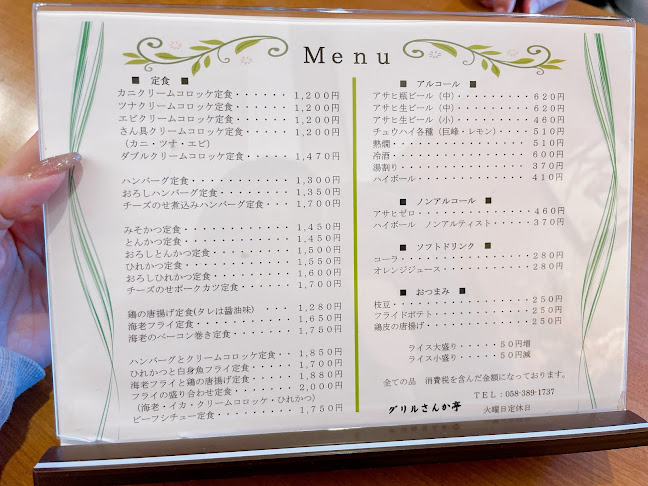 Menu
■ 定食 ■
カニクリームコロッケ定食・・・・・・1,200円
ツナクリームコロッケ定食・・・・・・1,200円
エビクリームコロッケ定食・・・・・・1,200円
さん具クリームコロッケ定食・・・・・1,200円
（カニ・ツナ・エビ）
ダブルクリームコロッケ定食・・・・・1,470円
ハンバーグ定食・・・・・・・・・・・1,300円
おろしハンバーグ定食・・・・・・・・1,350円
チーズのせ煮込みハンバーグ定食・・・1,700円
みそかつ定食・・・・・・・・・・・・1,450円
とんかつ定食・・・・・・・・・・・・1,450円
おろしとんかつ定食・・・・・・・・・1,500円
ひれかつ定食・・・・・・・・・・・・1,550円
おろしひれかつ定食・・・・・・・・・1,600円
チーズのせポークカツ定食・・・・・・1,700円
鶏の唐揚げ定食(タレは醤油味)・・・・1,280円
海老フライ定食・・・・・・・・・・・1,650円
海老のベーコン巻き定食・・・・・・・1,750円
ハンバーグとクリームコロッケ定食・・1,850円
ひれかつと白身魚フライ定食・・・・・1,700円
海老フライと鶏の唐揚げ定食・・・・・1,880円
フライの盛り合わせ定食・・・・・・・2,000円
（海老・イカ・クリームコロッケ・ひれかつ）
ビーフシチュー定食・・・・・・・・・1,750円
■ アルコール ■
アサヒ瓶ビール（中）・・・・・・・620円
アサヒ生ビール（中）・・・・・・・620円
アサヒ生ビール（小）・・・・・・・460円
チュウハイ各種（巨峰・レモン）・・・510円
熱燗・・・・・・・・・・・・・・・510円
冷酒・・・・・・・・・・・・・・・600円
湯割り・・・・・・・・・・・・・・370円
ハイボール・・・・・・・・・・・・410円
■ ノンアルコール ■
アサヒゼロ・・・・・・・・・・・・460円
ハイボール ノンアルティスト・・・・370円
■ ソフトドリンク ■
コーラ・・・・・・・・・・・・・・280円
オレンジジュース・・・・・・・・・280円
■ おつまみ ■
枝豆・・・・・・・・・・・・・・・250円
フライドポテト・・・・・・・・・・250円
鶏皮の唐揚げ・・・・・・・・・・・250円
ライス大盛り・・・・・50円増
ライス小盛り・・・・・50円減
全ての品 消費税を含んだ金額になっております。
TEL：058-389-1737
グリルさんか亭 火曜日定休日